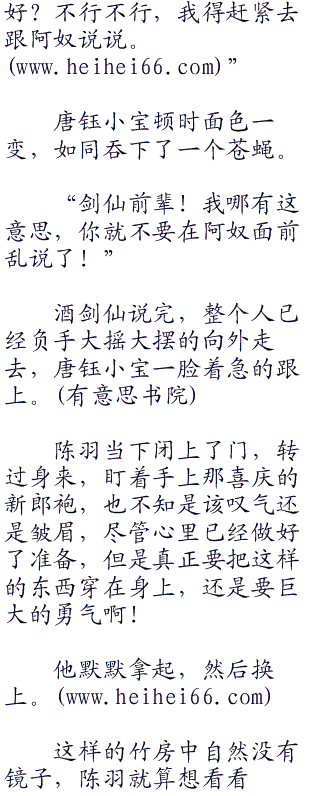 好？不行不行，我得赶紧去
跟阿奴说说。
(www.heihei66.com)”
“剑仙前辈！我哪有这
意思，你就不要在阿奴面前
乱说了！”
唐钰小宝顿时面色一
变，如同吞下了一个苍蝇。
酒剑仙说完，整个人已
经负手大摇大摆的向外走
去，唐钰小宝一脸着急的跟
上。(有意思书院)
陈羽当下闭上了门，转
过身来，盯着手上那喜庆的
新郎袍，也不知是该叹气还
是皱眉，尽管心里已经做好
了准备，但是真正要把这样
的东西穿在身上，还是要巨
大的勇气啊！
他默默拿起，然后换
上。(www.heihei66.com)
这样的竹房中自然没有
镜子，陈羽就算想看看